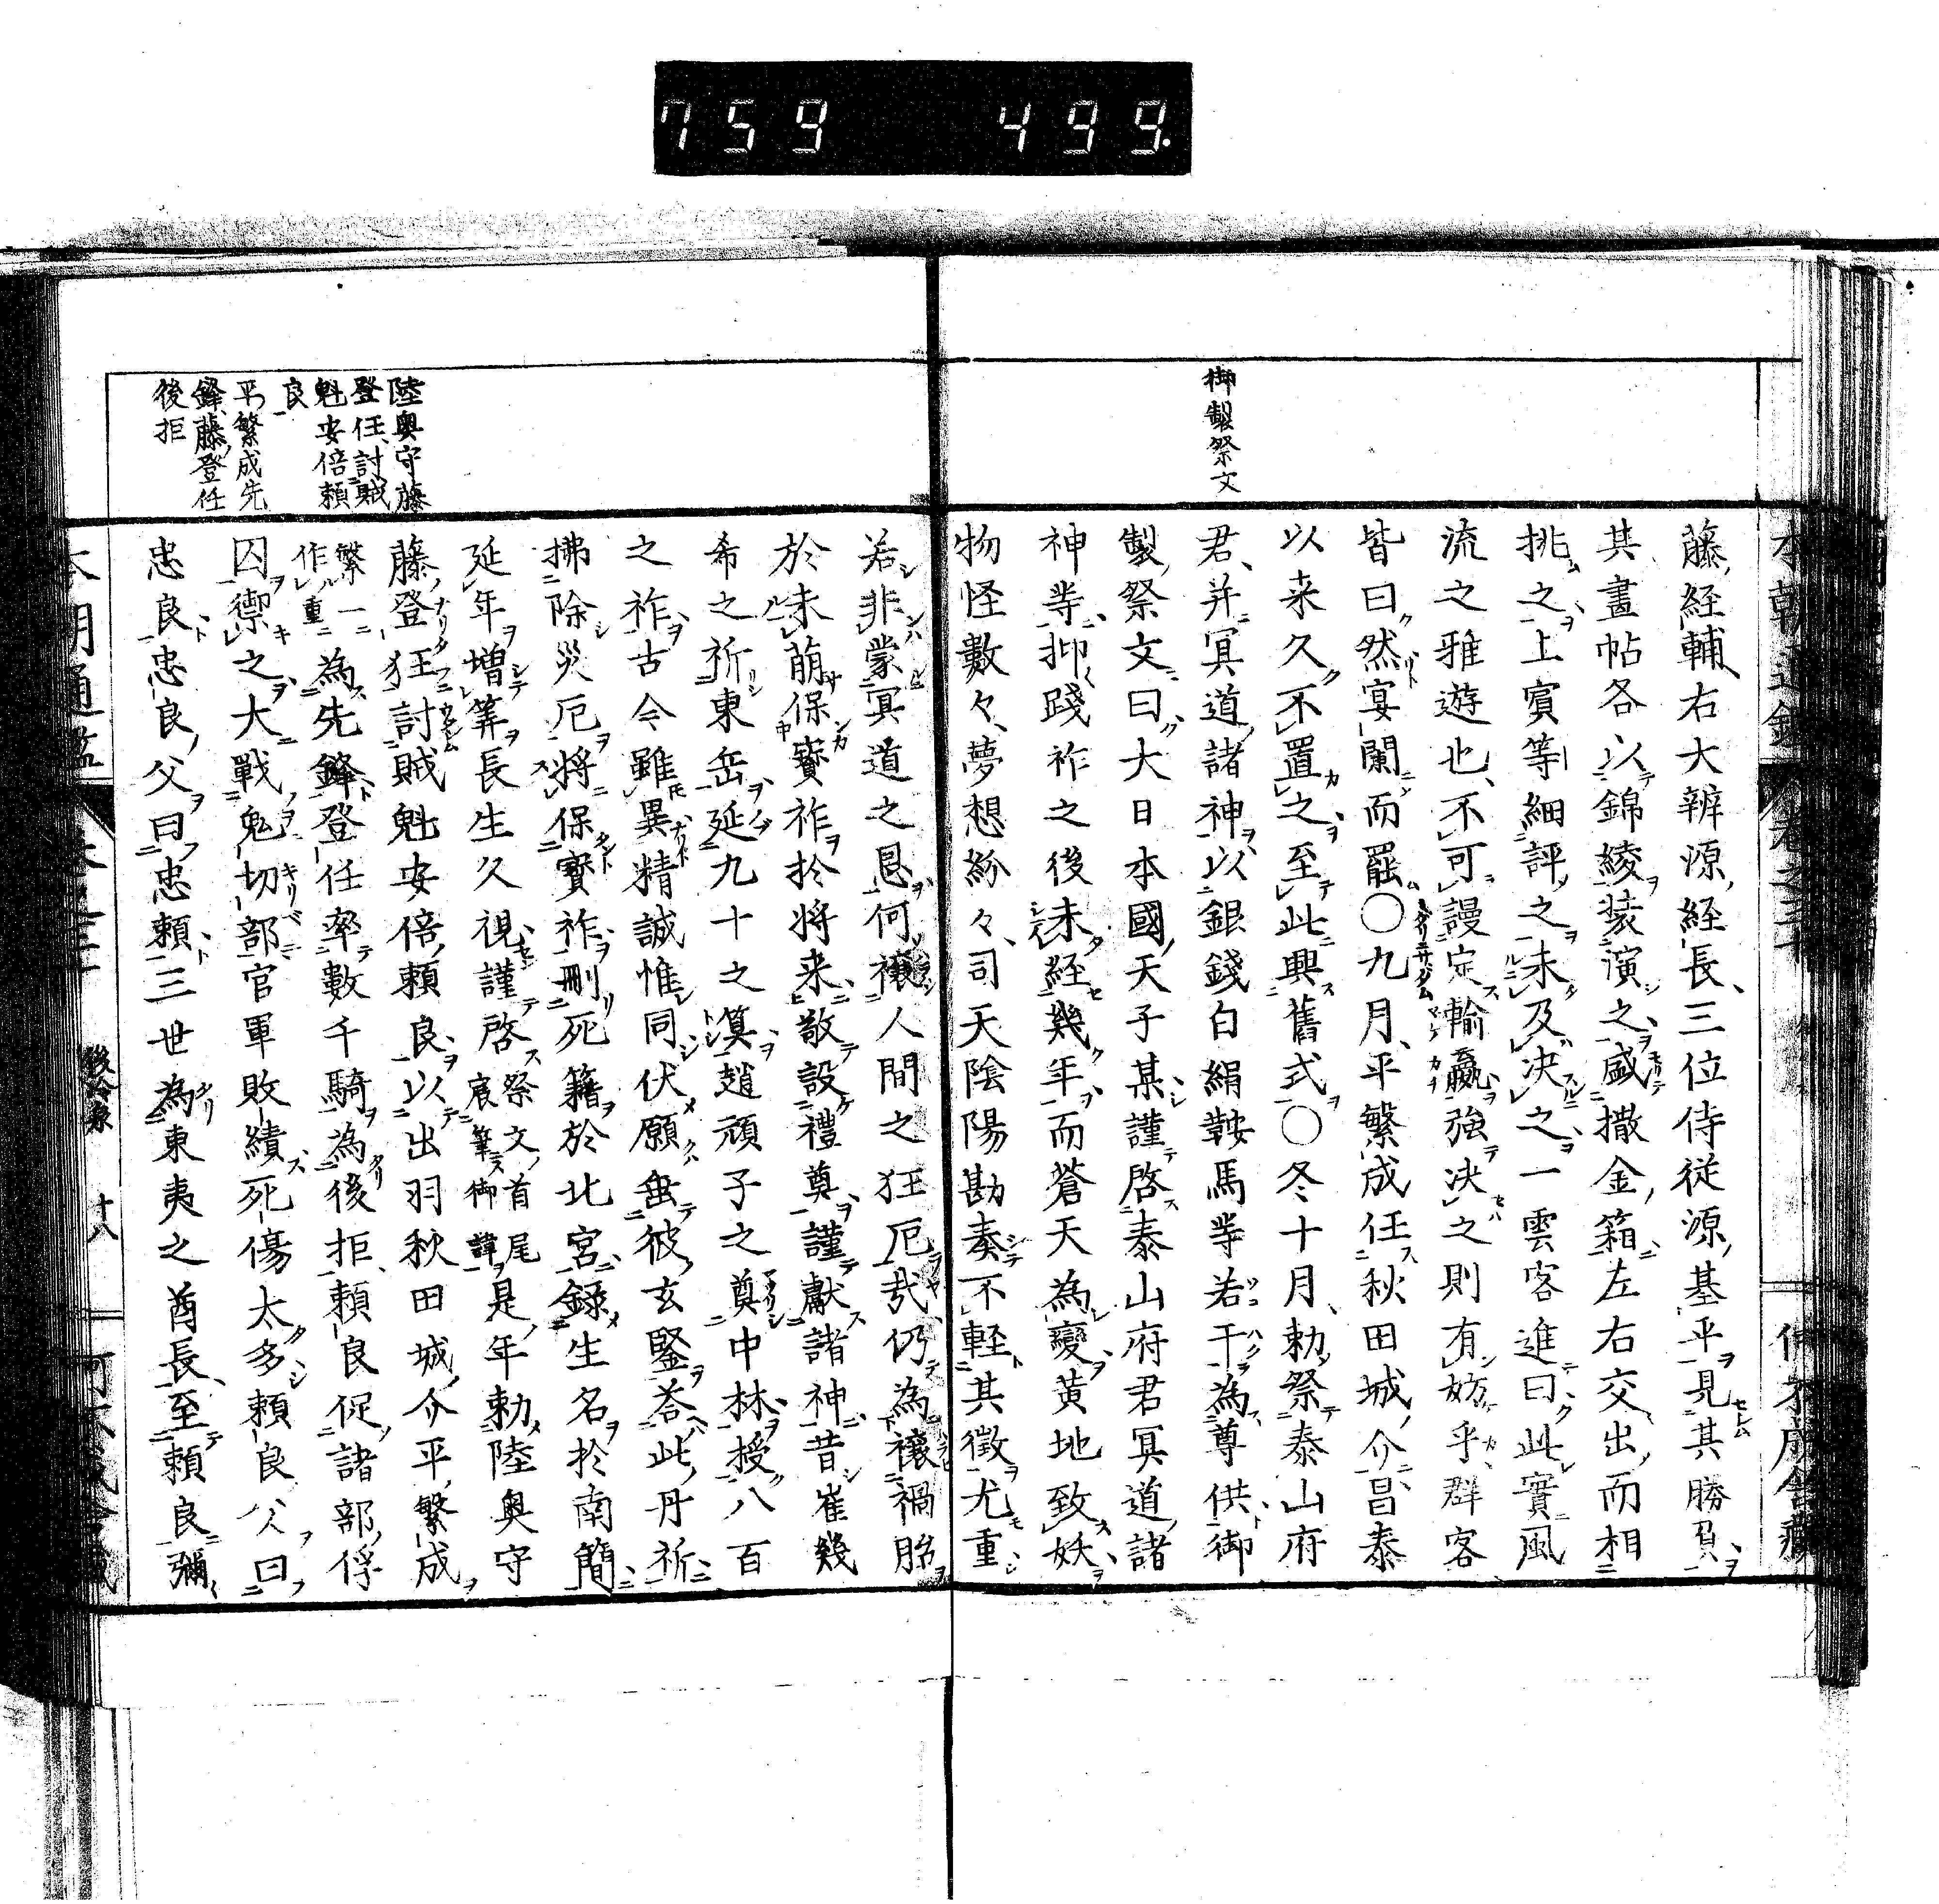 759 499.
御製祭文
藤経輔右大辨源経長三位侍従源基平見其勝負
其畫帖各以錦綾装演之盛撒金箱左右交出而相
挑之上賓等細評之未及決之一雲客進曰此實風
流之雅遊也不可謾定輸贏強決之則有妨乎群客
皆曰然宴闌而罷〇九月平繁成任秋田城介昌泰
以来久不置之至此興舊式〇冬十月勅祭泰山府
君并冥道諸神以銀錢白絹鞍馬等若干為尊供御
製祭文曰大日本國天子某謹啓泰山府君冥道諸
神等抑踐祚之後未経幾年而蒼天為變黄地致妖
物怪數々夢想紛々司天陰陽勘奏不軽其徴尤重
若非蒙冥道之恩何禳人間之狂厄哉仍為禳禍胎
於未萠保寳祚於將来敬設禮奠謹獻諸神昔崔幾
希之祈東岳延九十之筭趙頑子之奠中林授八百
之祚古今雖異精誠惟同伏願垂彼玄鑒答此丹祈
拂除災厄將保寳祚刪死籍於北宮録生名於南簡
延年増筭長生久視謹啓 祭文首尾宸筆御諱 是年勅陸奥守
藤登任討賊魁安倍頼良以出羽秋田城介平繁成
繁一作重 為先鋒登任率數千騎為後拒頼良促諸部俘
囚禦之大戰鬼切部官軍敗績死傷太多頼良父曰
忠良忠良父曰忠頼三世為東夷之酋長至頼良彌
陸奥守藤
登任討賊
魁安倍頼
良
平繁成先
鋒藤登任
後拒
後冷泉 十八